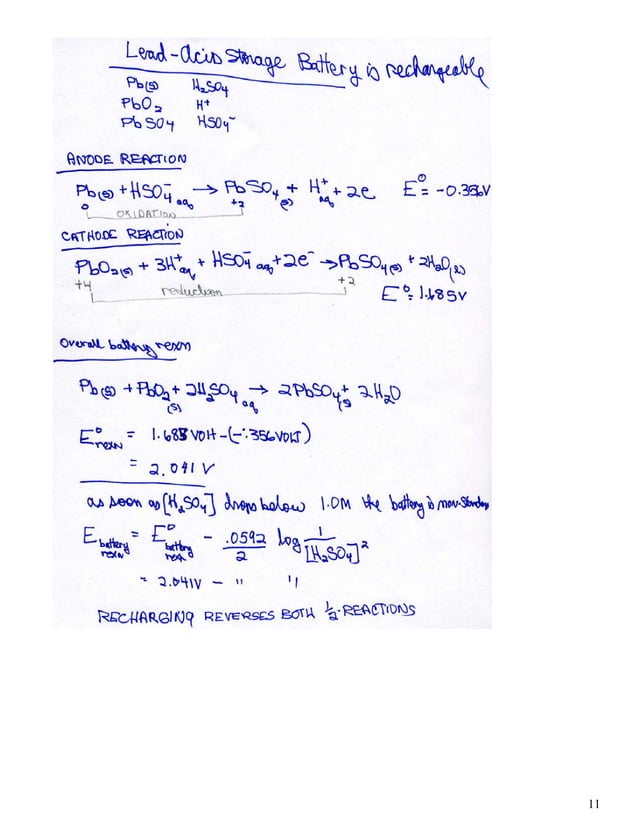 Lead-Acid Storage Battery is rechargeable
Pb(s) H₂SO₄
PbO₂ H⁺
PbSO4 HSO₄⁻
ANODE REACTION
Pb(s) + HSO₄⁻ aq → PbSO₄(s) + H⁺aq + 2e E° = -0.356V
0 OXIDATION +2
CATHODE REACTION
PbO₂(s) + 3H⁺aq + HSO₄⁻aq + 2e⁻ → PbSO₄(s) + 2H₂O(l)
+4 reduction +2
E° = 1.685V
Overall battery rexn
Pb(s) + PbO₂(s) + 2H₂SO₄ aq → 2PbSO₄(s) + 2H₂O
E°rexn = 1.685 VOLT - (-.356 VOLT)
= 2.041 V
as soon as [H₂SO₄] drops below 1.0M the battery is non-standard
E battery rexn = E° battery rexn - .0592/2 log 1/[H₂SO₄]²
= 2.041V - " "
RECHARGING REVERSES BOTH ½-REACTIONS
11